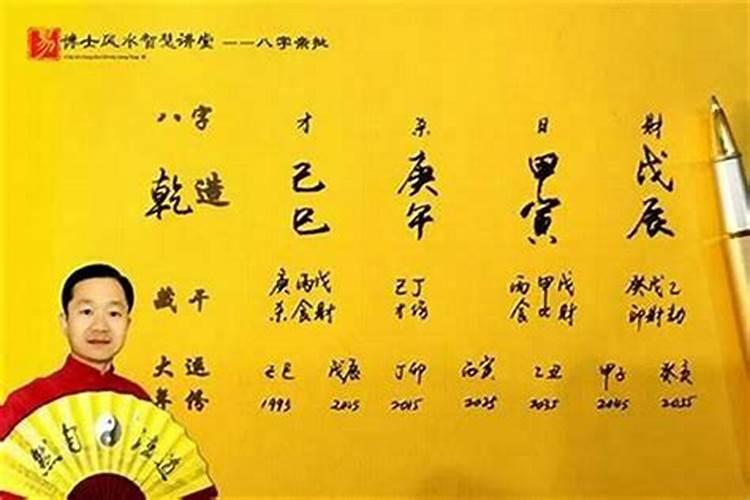 易 博士风水智慧讲堂 ——八字亲批
八字 才 杀 日 财
乾造 己 庚 甲 戊
巳 午 寅 辰
藏干 庚丙戊 己丁 丙甲戊 癸戊乙
杀食财 才伤 食 财 印财劫
大运 己巳 戊辰 丁卯 丙寅 乙丑 甲子 癸亥
年份 1995 2005 2015 2025 2035 2045 2055
道法自然